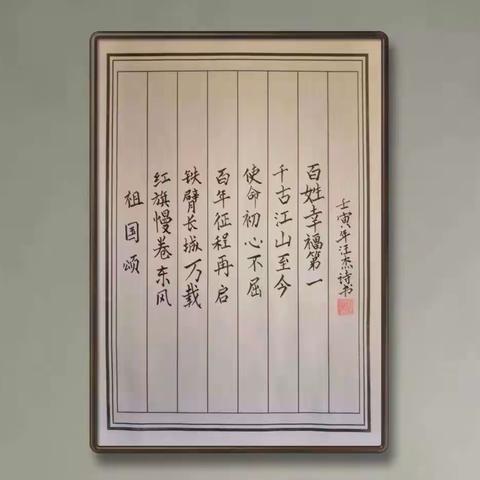 祖国颂
红旗慢卷东风
铁臂长城万载
百年征程再启
使命初心不屈
千古江山至今
百姓幸福第一
壬寅年汪杰诗书